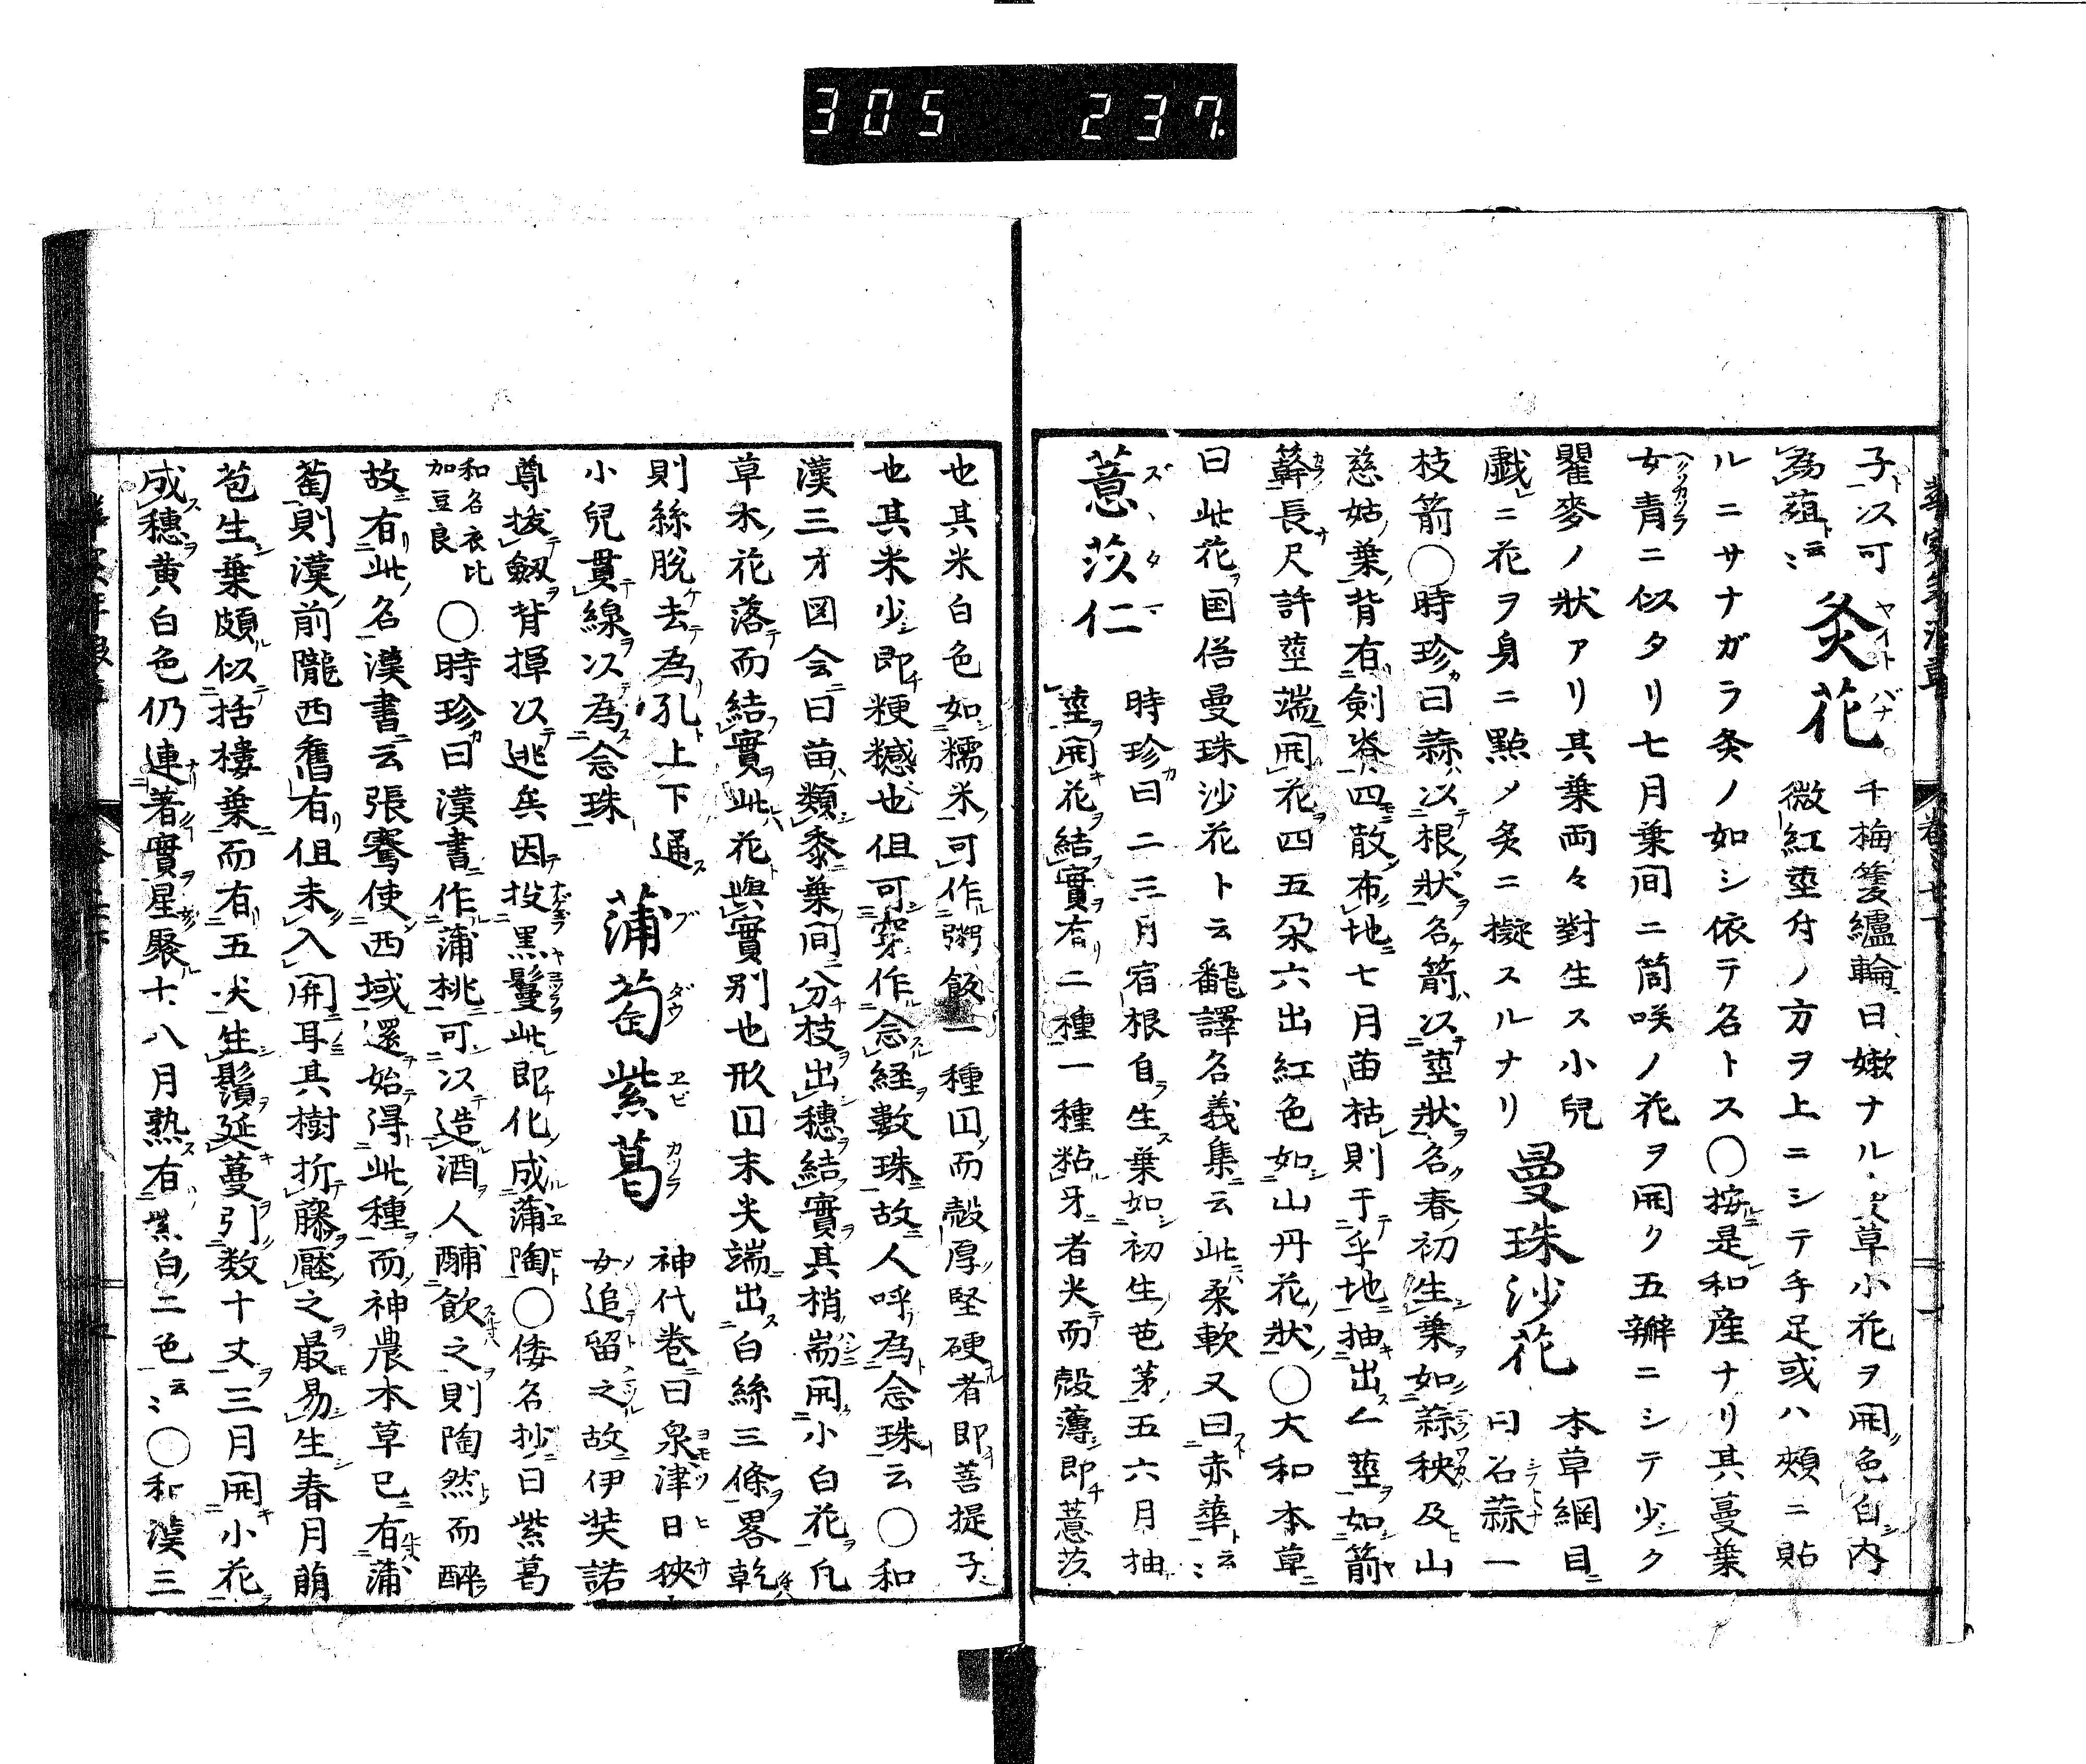 305 237
子以可
為葅ト云〻
灸花
ヤイトバナ
千梅篗纑輪曰嫩ナル草小花ヲ開色白内
微紅莖付ノ方ヲ上ニシテ手足或ハ頰ニ貼
ルニサナガラ灸ノ如シ依テ名トス〇按是和産ナリ其蔓葉
女青ニ似タリ七月葉間ニ筒咲ノ花ヲ開ク五瓣ニシテ少シク
ヘクソカツラ
瞿麥ノ狀アリ其葉両々對生ス小兒
戯ニ花ヲ身ニ點メ灸ニ擬スルナリ
曼珠沙花
本草綱目
曰石蒜一
枝箭〇時珍曰蒜以根狀名箭以莖狀名春初生葉如蒜秧及山
慈姑葉背有剣脊四散布地七月苗枯則于乎地抽出一莖如箭
簳長尺許莖端開花四五朶六出紅色如山丹花狀〇大和本草
曰此花国俗曼珠沙花ト云翻譯名義集云此柔軟又曰赤華ト云〻
薏苡仁
ズヾダマ
時珍曰二三月宿根自生葉如初生芭茅五六月抽
莖開花結實有二種一種粘牙者尖而殼薄即薏苡
也其米白色如糯米可作粥飯一種囙而殼厚堅硬者即菩提子
也其米少即粳䊏也但可穿作念経數珠故人呼為念珠云〇和
漢三才図会曰苗類黍葉間分枝出穗結實其梢耑開小白花凡
草木花落而結實此花與實别也形囙末尖端出白絲三條畧乾
則絲脫去為孔上下通
小兒貫線以為念珠
蒲萄紫葛
ブダウ ヱビカツラ
神代巻曰泉津日狹
女追留之故伊弉諾
尊拔劔背揮以逃矣因投黒鬘此即化成蒲陶〇倭名抄曰紫葛
和名衣比
加豆良
〇時珍曰漢書作蒲桃可以造酒人酺飲之則陶然而醉
故有此名漢書云張騫使西域還始得此種而神農本草已有蒲
萄則漢前隴西舊有但未入關耳其樹折藤壓之最易生春月萠
苞生葉頗似括樓葉而有五尖生鬚延蔓引数十丈三月開小花
成穗黄白色仍連著實星聚七八月熟有紫白二色云〻〇和漢三